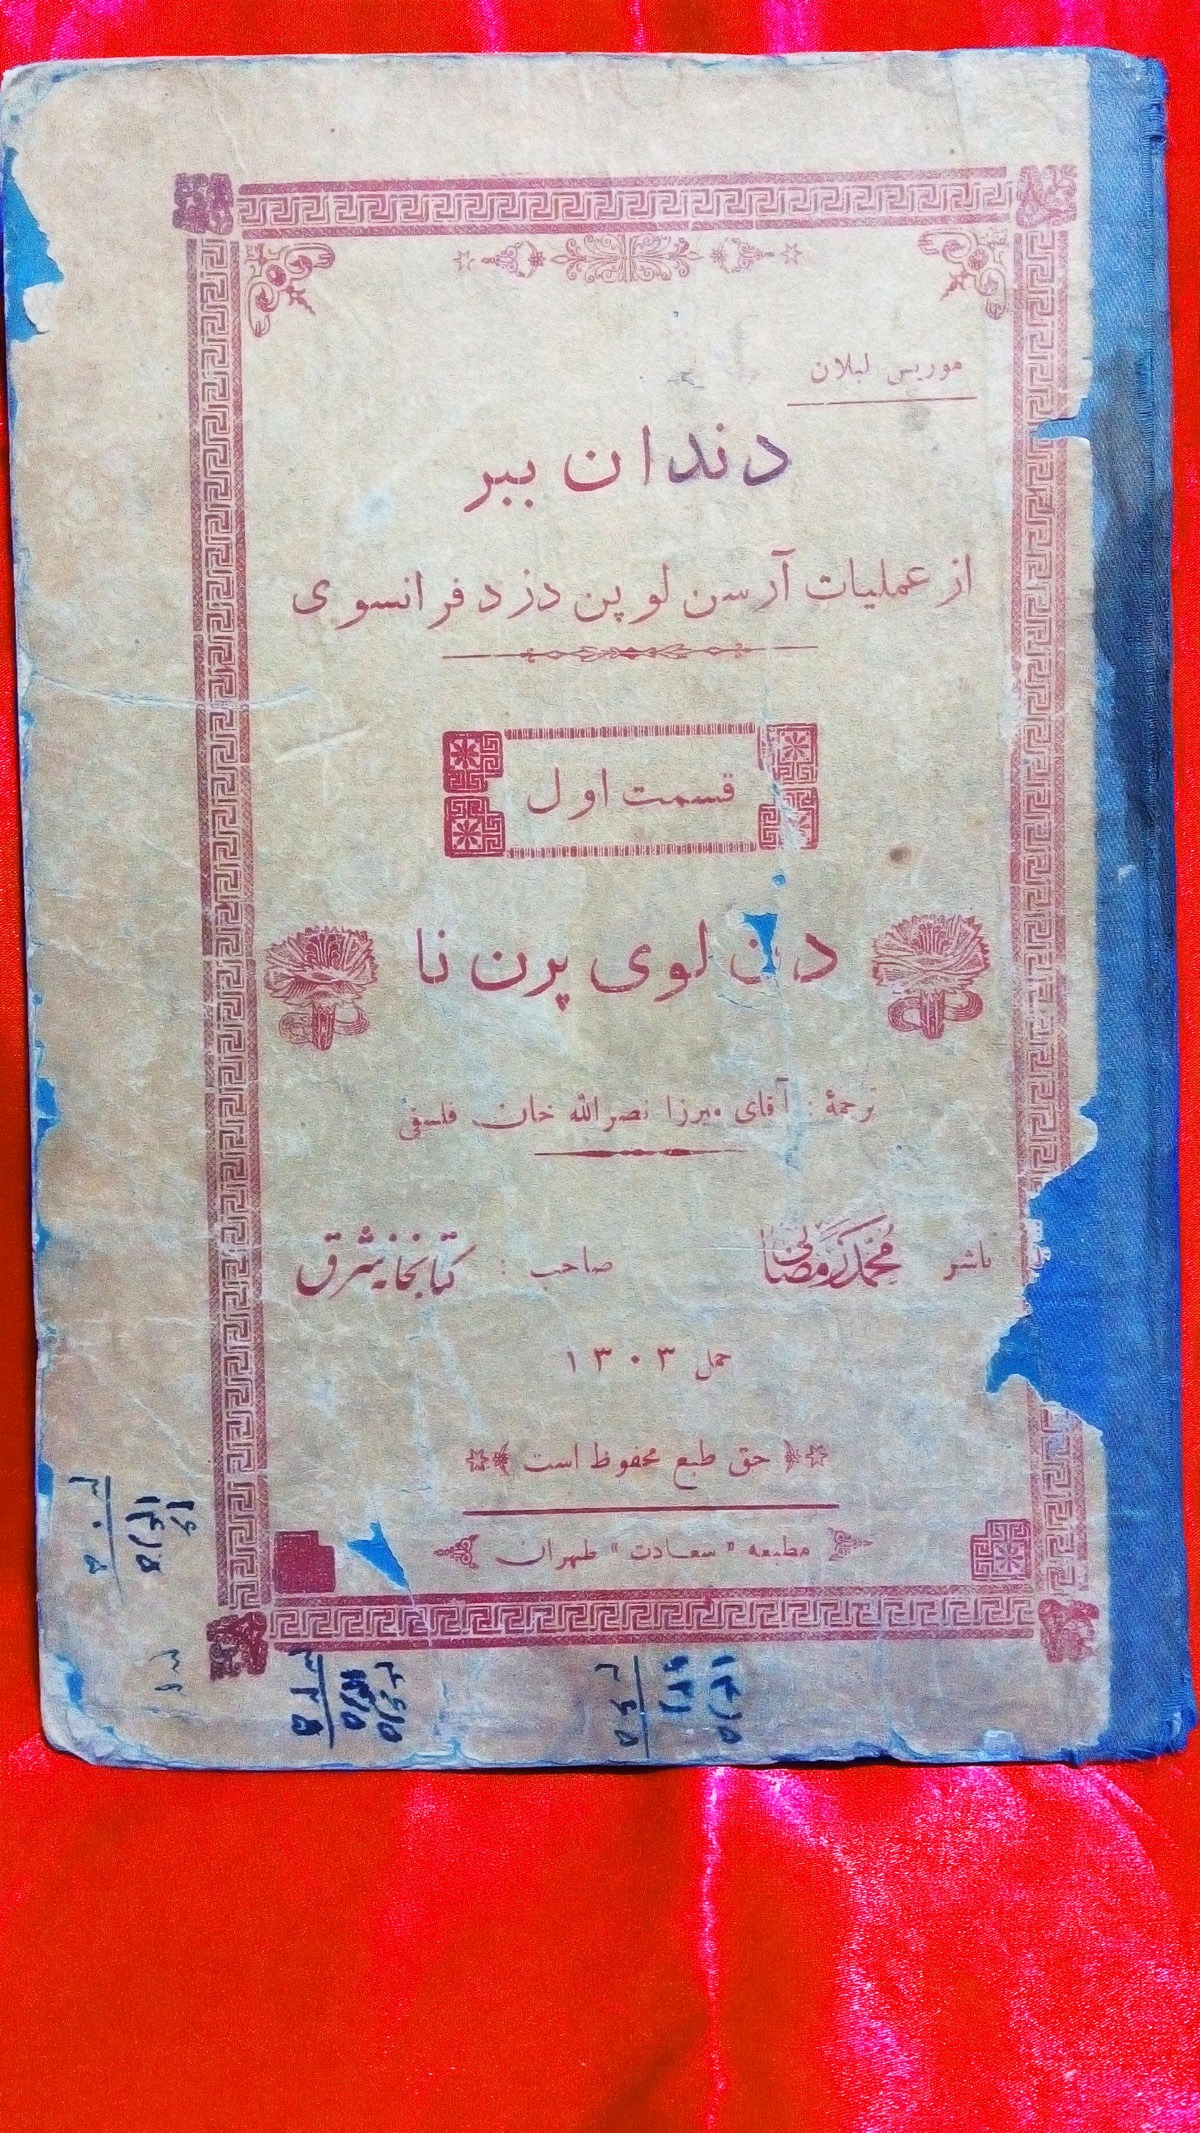 موریس لبلان
دندان ببر
از عملیات آرسن لوپن دزد فرانسوی
قسمت اول
دن لوی پرن نا
ترجمهٔ : آقای میرزا نصرالله خان فلسفی
ناشر محمد رمضانی صاحب : کتابخانه شرق
حمل ۱۳۰۳
حق طبع محفوظ است
مطبعه «سعادت» طهران